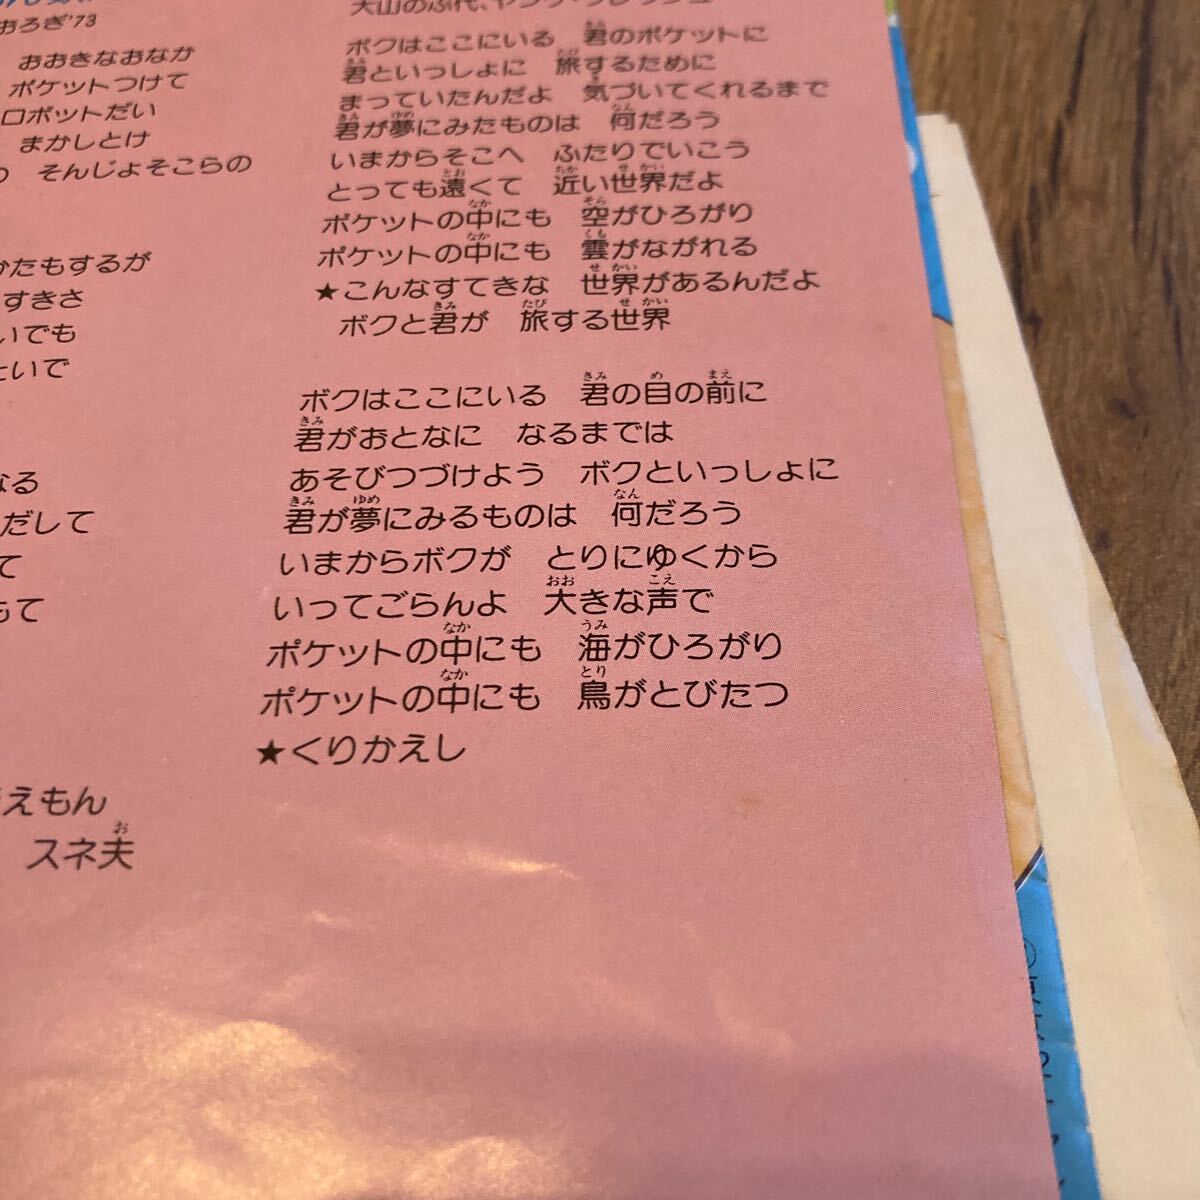 おろぎ'73
おおきなおなか
ポケットつけて
ロボットだい
まかしとけ
の そんじょそこらの
かたもするが
すきさ
いでも
といで
なる
だして
て
もて
えもん
スネ夫
大山のぶ代、ヤング・フレッシュ
ボクはここにいる 君のポケットに
君といっしょに 旅するために
まっていたんだよ 気づいてくれるまで
君が夢にみたものは 何だろう
いまからそこへ ふたりでいこう
とっても遠くて 近い世界だよ
ポケットの中にも 空がひろがり
ポケットの中にも 雲がながれる
★こんなすてきな 世界があるんだよ
ボクと君が 旅する世界
ボクはここにいる 君の目の前に
君がおとなに なるまでは
あそびつづけよう ボクといっしょに
君が夢にみるものは 何だろう
いまからボクが とりにゆくから
いってごらんよ 大きな声で
ポケットの中にも 海がひろがり
ポケットの中にも 鳥がとびたつ
★くりかえし